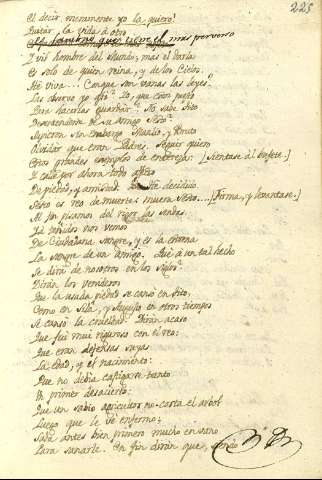 225
El decir meramente yo lo quiero!
Quitar la vida à otro
el mas perverso
Y vil hombre del Mundo; mas el darla
Es solo de quien reina, y de los Cielos.
Hà viva... Conque son vanas las leyes?
Las obligo yo Yo, que
Para hacerlas guardar? No sabe Sito
Desentenderse de su Amigo Sexto?
Supieron sin embargo Manlio, y Bruto
Olvidar que eran Padres. Seguir quiero
Estos grandes exemplos de entereza: [Sientase al bufete.]
Y calle por ahora todo afecto
De piedad, y amistad. decidido.
Sexto es reo de muerte: muera Sexto... [Firma, y levantase.]
Al fin pisamos del rigor las sendas.
Yà teñidos nos vemos
De Ciudadana sangre, y es la primera
La sangre de un amigo. Què à un tal hecho
Se dirà de nosotros en los siglos?
Diràn los venideros
Que la usada piedad se cansò en Sito,
Como en Sila, y Augusto en otros tiempos
Se cansò la crueldad. Diràn acaso
Que fui muy riguroso con el reo:
Que eran defensas suyas
La edad, y el nacimiento:
Que no debia castigarse tanto
El primer desacierto:
Que un sabio agricultor no corta el arbol
Luego que le vè enfermo;
Suda antes bien primero mucho en vano
Para sanarle. En fin diràn que, siendo